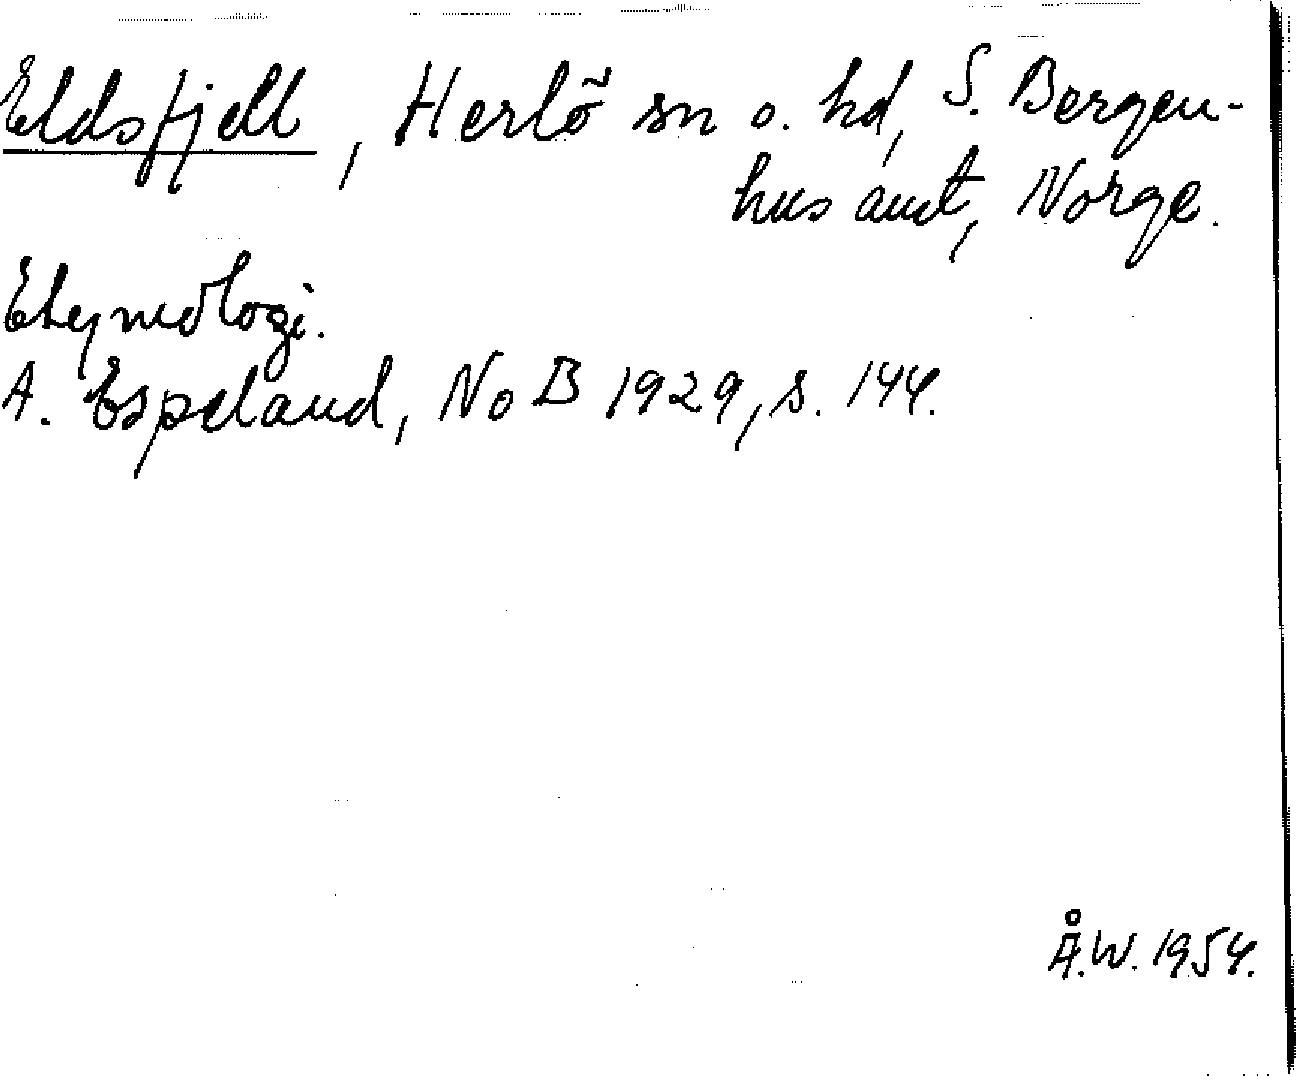 Eldsfjell, Herlö sn o. hd, S. Bergen-
hus amt, Norge.
Etymologi.
A. Espeland, NoB 1929, s. 144.
Å.W. 1954.